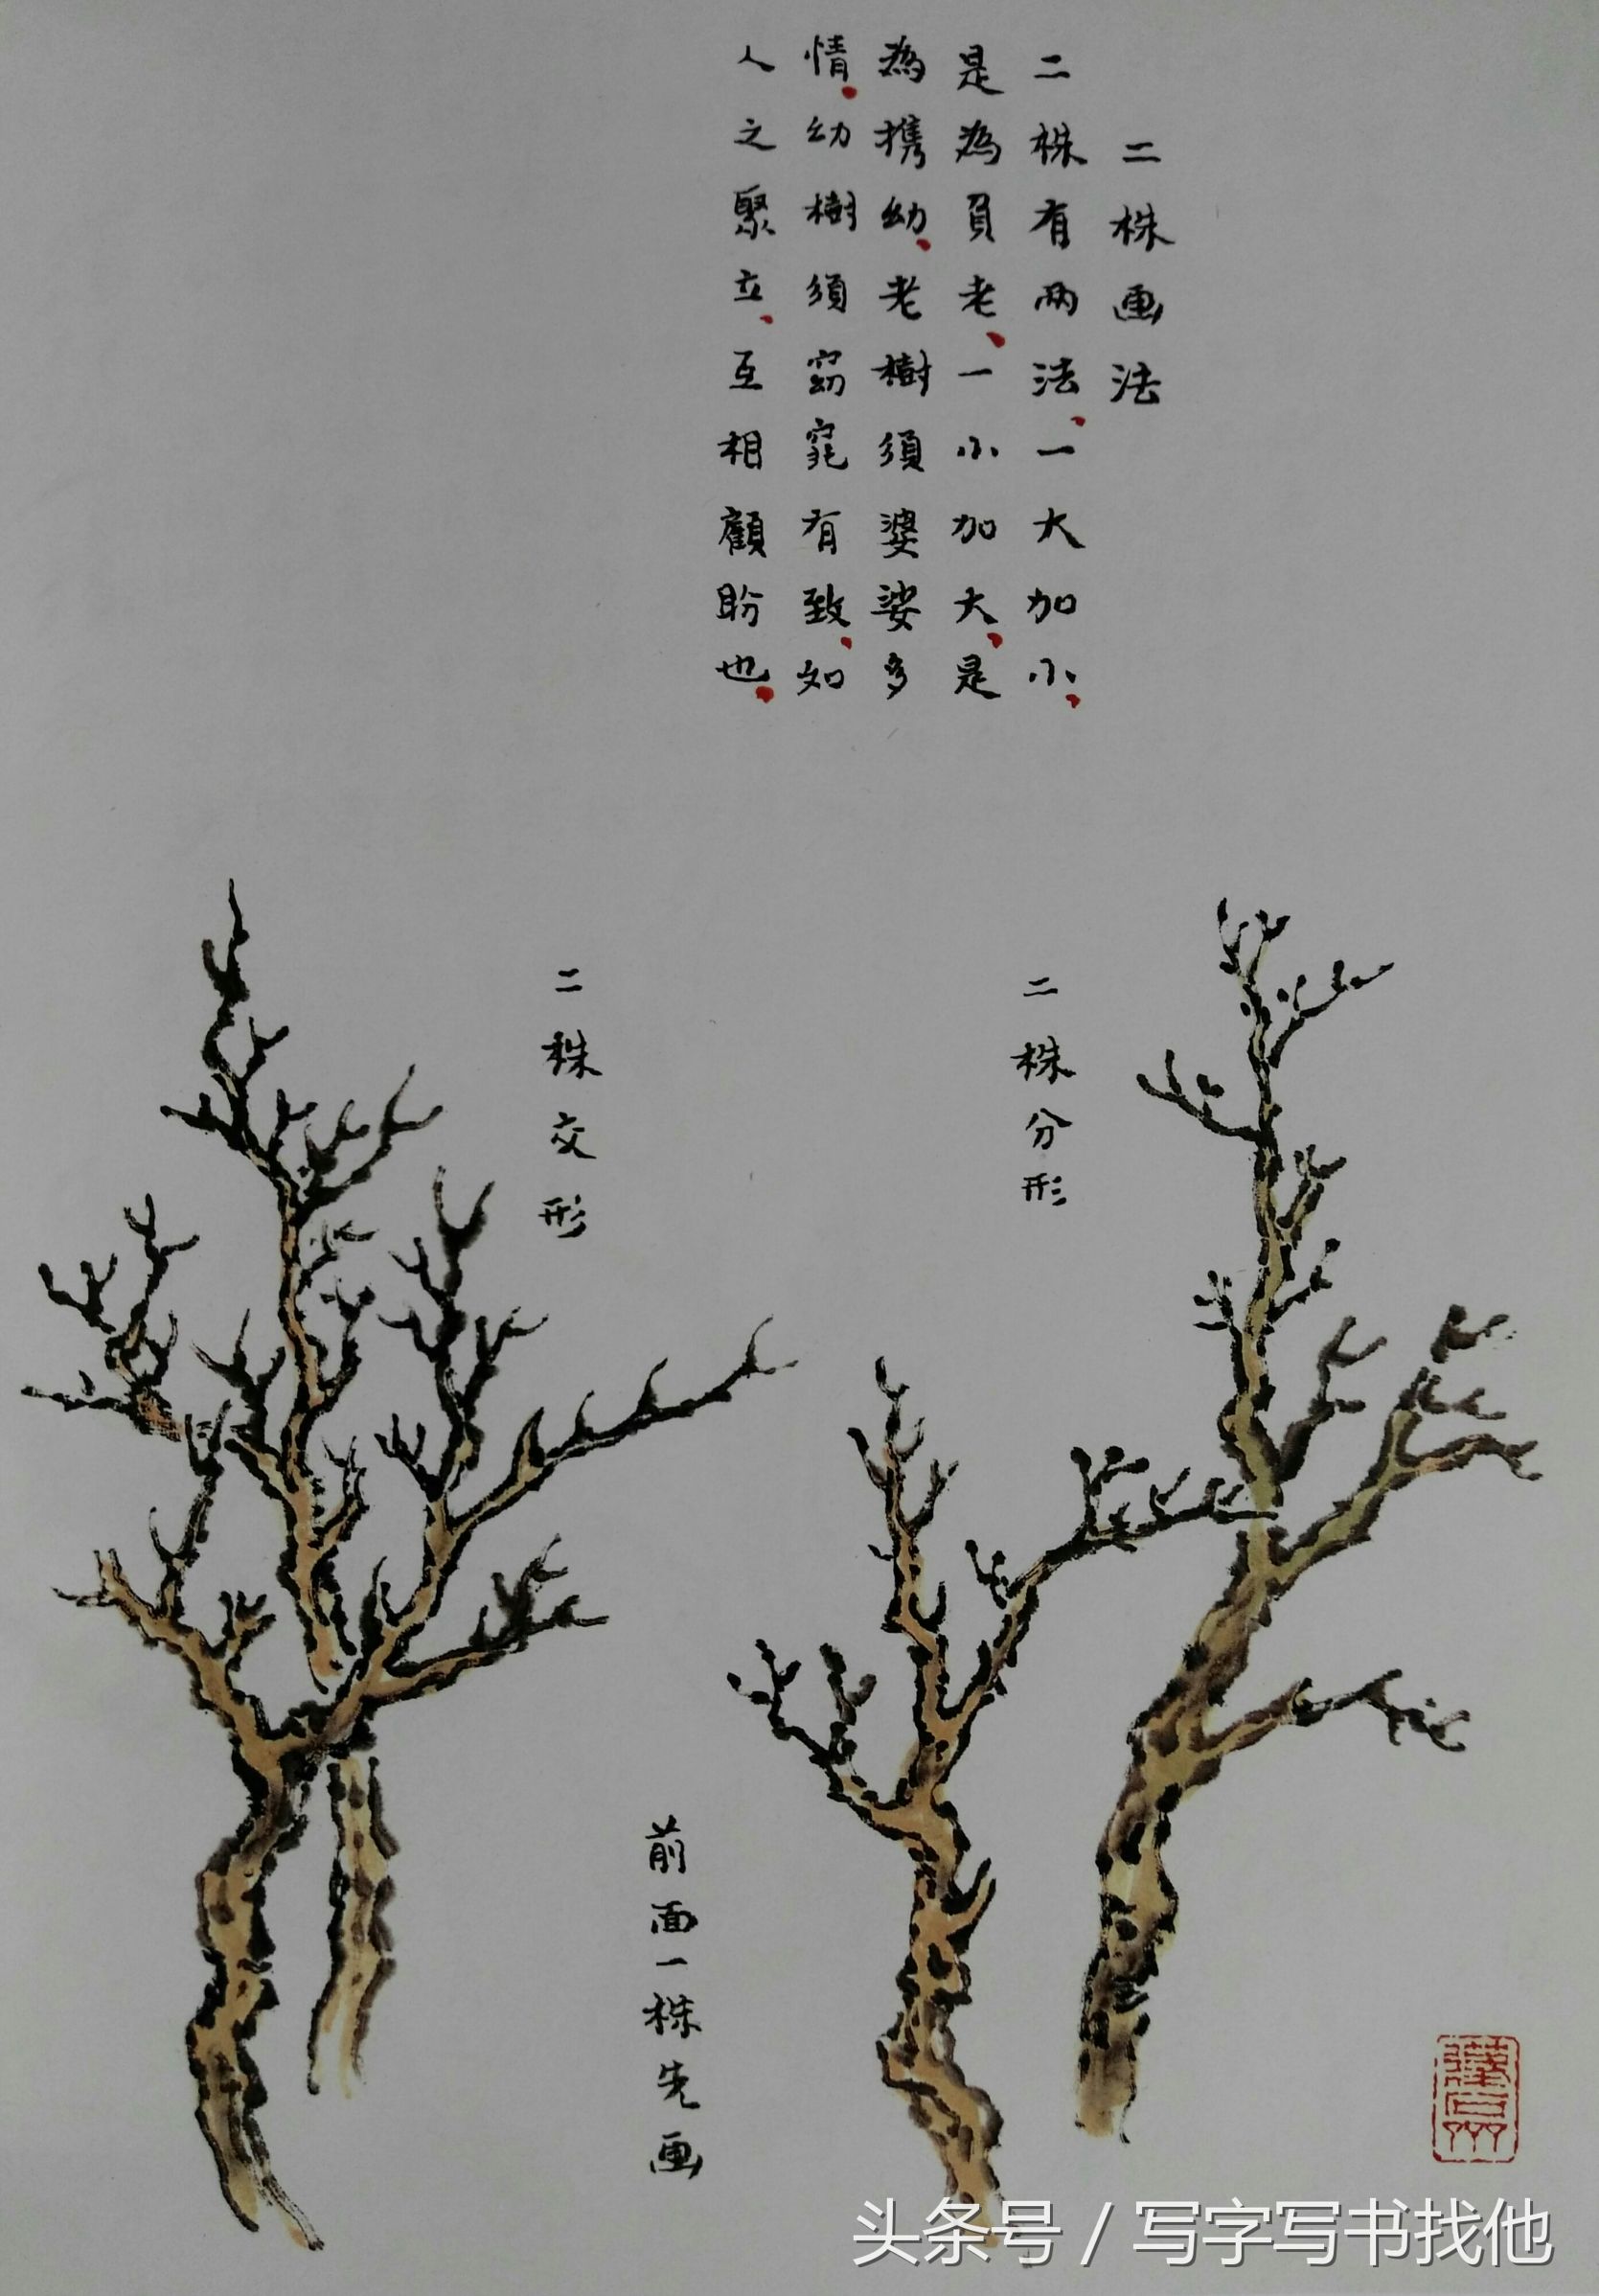 二株画法
二株有两法、一大加小、
是為負老、一小加大、是
為携幼、老樹須婆娑多
情、幼樹須窈窕有致、如
人之聚立、互相顧盼也、
二株分形
二株交形
前面一株先画
头条号 / 写字写书找他